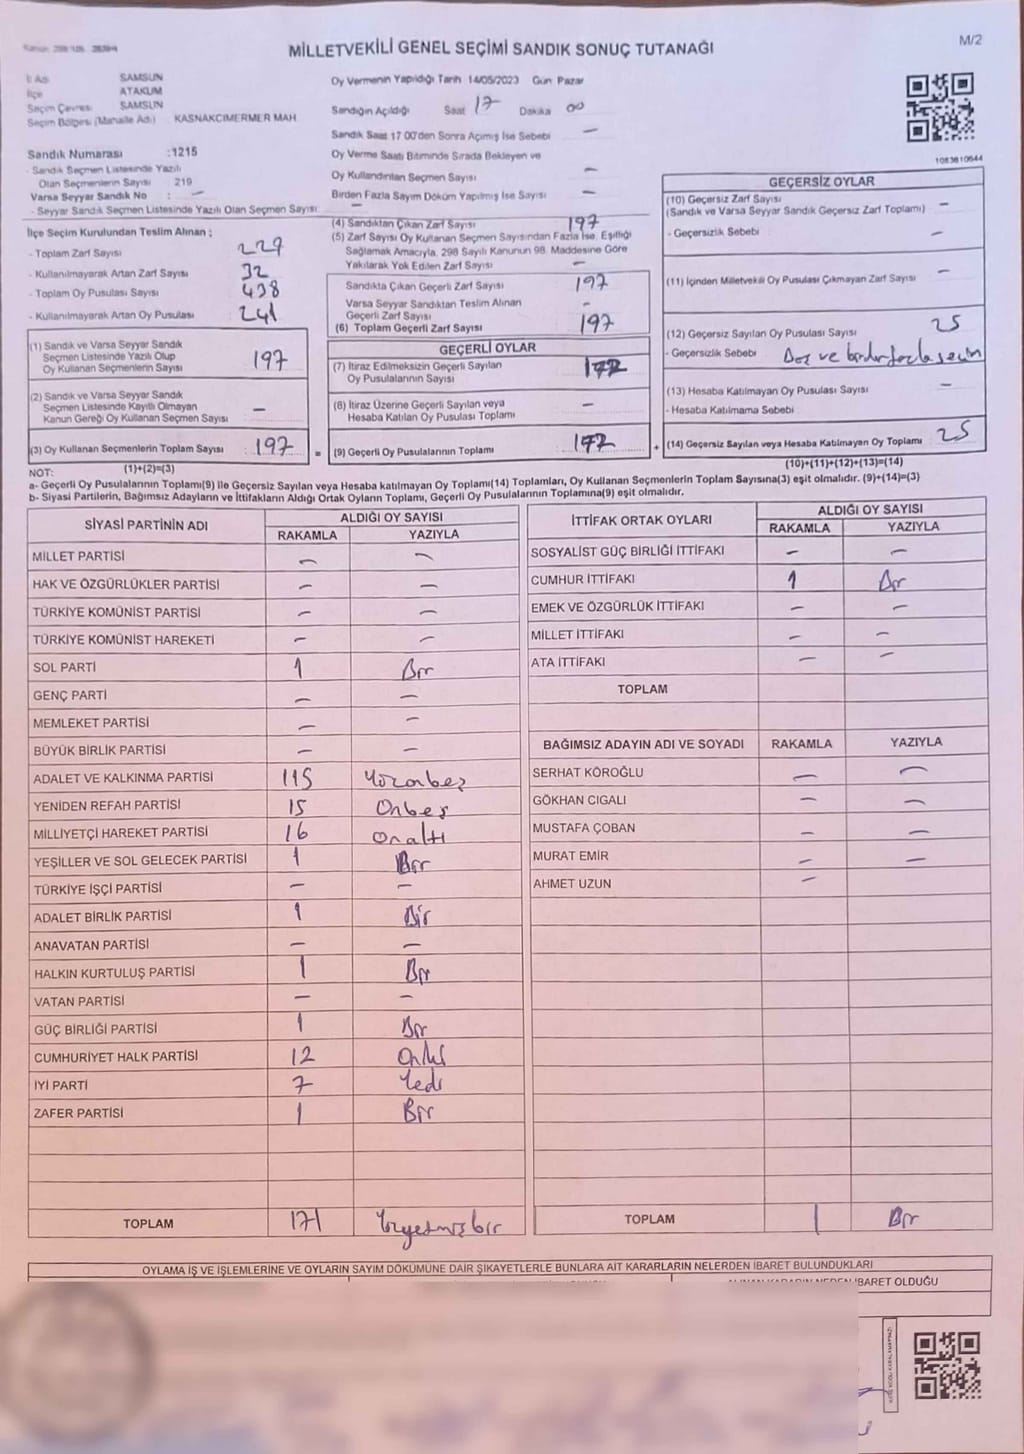 MİLLETVEKİLİ GENEL SEÇİMİ SANDIK SONUÇ TUTANAĞI
M/2
İl Adı SAMSUN
İlçe ATAKUM
Seçim Çevresi SAMSUN
Seçim Bölgesi (Mahalle Adı) KASNAKCIMERMER MAH
Oy Vermenin Yapıldığı Tarih 14/05/2023 Gün Pazar
Sandığın Açıldığı Saat 17 Dakika 00
Sandık Saat 17 00'den Sonra Açımış İse Sebebi —
Oy Verme Saati Bitiminde Sırada Bekleyen ve
Oy Kullandırılan Seçmen Sayısı —
Birden Fazla Sayım Döküm Yapılmış İse Sayısı —
Sandık Numarası :1215
- Sandık Seçmen Listesinde Yazılı
Olan Seçmenlerin Sayısı 219
Varsa Seyyar Sandık No : —
- Seyyar Sandık Seçmen Listesinde Yazılı Olan Seçmen Sayısı —
İlçe Seçim Kurulundan Teslim Alınan ;
- Toplam Zarf Sayısı 229
- Kullanılmayarak Artan Zarf Sayısı 32
- Toplam Oy Pusulası Sayısı 438
- Kullanılmayarak Artan Oy Pusulası 241
(1) Sandık ve Varsa Seyyar Sandık
Seçmen Listesinde Yazılı Olup
Oy Kullanan Seçmenlerin Sayısı 197
(2) Sandık ve Varsa Seyyar Sandık
Seçmen Listesinde Kayıtlı Olmayan
Kanun Gereği Oy Kullanan Seçmen Sayısı —
(3) Oy Kullanan Seçmenlerin Toplam Sayısı 197
(1)+(2)=(3)
(4) Sandıktan Çıkan Zarf Sayısı 197
(5) Zarf Sayısı Oy Kullanan Seçmen Sayısından Fazla İse, Eşitliği
Sağlamak Amacıyla, 298 Sayılı Kanunun 98. Maddesine Göre
Yakılarak Yok Edilen Zarf Sayısı —
Sandıkta Çıkan Geçerli Zarf Sayısı 197
Varsa Seyyar Sandıktan Teslim Alınan
Geçerli Zarf Sayısı -
(6) Toplam Geçerli Zarf Sayısı 197
GEÇERLİ OYLAR
(7) İtiraz Edilmeksizin Geçerli Sayılan
Oy Pusulalarının Sayısı 172
(8) İtiraz Üzerine Geçerli Sayılan veya
Hesaba Katılan Oy Pusulası Toplamı —
= (9) Geçerli Oy Pusulalarının Toplamı 172 +
1083810644
GEÇERSİZ OYLAR
(10) Geçersiz Zarf Sayısı —
(Sandık ve Varsa Seyyar Sandık Geçersiz Zarf Toplamı)
- Geçersizlik Sebebi —
(11) İçinden Milletvekili Oy Pusulası Çıkmayan Zarf Sayısı —
(12) Geçersiz Sayılan Oy Pusulası Sayısı 25
- Geçersizlik Sebebi ve birden fazla seçim
(13) Hesaba Katılmayan Oy Pusulası Sayısı —
- Hesaba Katılmama Sebebi
(14) Geçersiz Sayılan veya Hesaba Katılmayan Oy Toplamı 25
(10)+(11)+(12)+(13)=(14)
NOT:
a- Geçerli Oy Pusulalarının Toplamı(9) ile Geçersiz Sayılan veya Hesaba katılmayan Oy Toplamı(14) Toplamları, Oy Kullanan Seçmenlerin Toplam Sayısına(3) eşit olmalıdır. (9)+(14)=(3)
b- Siyasi Partilerin, Bağımsız Adayların ve İttifakların Aldığı Ortak Oyların Toplamı, Geçerli Oy Pusulalarının Toplamına(9) eşit olmalıdır.
SİYASİ PARTİNİN ADI ALDIĞI OY SAYISI
RAKAMLA YAZIYLA
MİLLET PARTİSİ — —
HAK VE ÖZGÜRLÜKLER PARTİSİ — —
TÜRKİYE KOMÜNİST PARTİSİ — —
TÜRKİYE KOMÜNİST HAREKETİ — —
SOL PARTİ 1 Bir
GENÇ PARTİ — —
MEMLEKET PARTİSİ — —
BÜYÜK BİRLİK PARTİSİ — —
ADALET VE KALKINMA PARTİSİ 115 Yüzonbeş
YENİDEN REFAH PARTİSİ 15 Onbeş
MİLLİYETÇİ HAREKET PARTİSİ 16 Onaltı
YEŞİLLER VE SOL GELECEK PARTİSİ 1 Bir
TÜRKİYE İŞÇİ PARTİSİ — —
ADALET BİRLİK PARTİSİ 1 Bir
ANAVATAN PARTİSİ — —
HALKIN KURTULUŞ PARTİSİ 1 Bir
VATAN PARTİSİ — —
GÜÇ BİRLİĞİ PARTİSİ 1 Bir
CUMHURİYET HALK PARTİSİ 12 Oniki
İYİ PARTİ 7 Yedi
ZAFER PARTİSİ 1 Bir
TOPLAM 171 Yüzyetmişbir
İTTİFAK ORTAK OYLARI ALDIĞI OY SAYISI
RAKAMLA YAZIYLA
SOSYALİST GÜÇ BİRLİĞİ İTTİFAKI — —
CUMHUR İTTİFAKI 1 Bir
EMEK VE ÖZGÜRLÜK İTTİFAKI — —
MİLLET İTTİFAKI — —
ATA İTTİFAKI — —
TOPLAM
BAĞIMSIZ ADAYIN ADI VE SOYADI RAKAMLA YAZIYLA
SERHAT KÖROĞLU — —
GÖKHAN CIGALI — —
MUSTAFA ÇOBAN — —
MURAT EMİR — —
AHMET UZUN —
TOPLAM 1 Bir
OYLAMA İŞ VE İŞLEMLERİNE VE OYLARIN SAYIM DÖKÜMÜNE DAİR ŞİKAYETLERLE BUNLARA AİT KARARLARIN NELERDEN İBARET BULUNDUKLARI
İBARET OLDUĞU